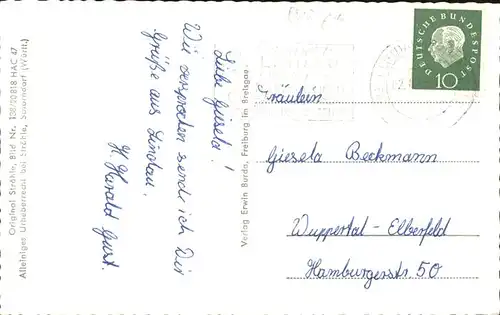 Liebe Giesela!
Wie versprochen sende ich Dir
Grüße aus Lindau.
H. Harald
Original Ströhle, Bild Nr.
Alleiniges Urheberrecht bei Ströhle, Schorndorf (Württ.)
Verlag Erwin Burda, Freiburg im Breisgau
DEUTSCHE BUNDESPOST
10
Fräulein
Giesela Beckmann
Wuppertal-Elberfeld
Hamburgerstr. 50